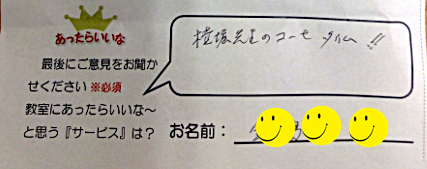 あったらいいな
最後にご意見をお聞か
せください ※必須
教室にあったらいいな～
と思う『サービス』は？
先生のコーヒータイム!!
お名前：